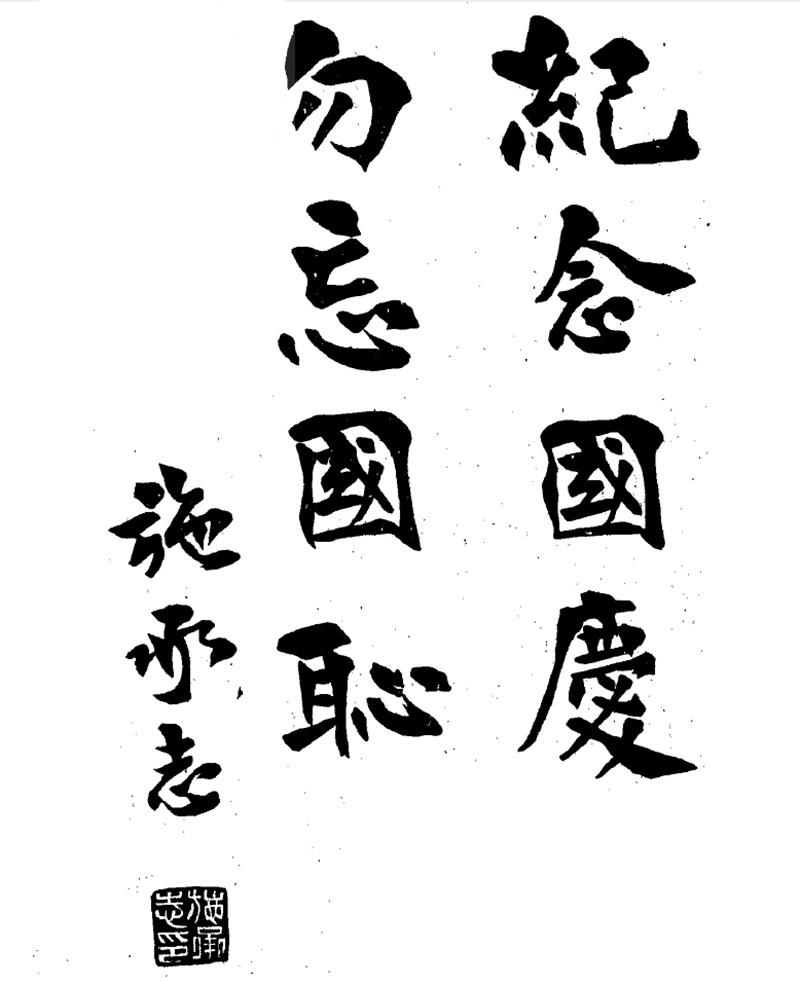 紀念國慶
勿忘國恥
施承志
施承志印